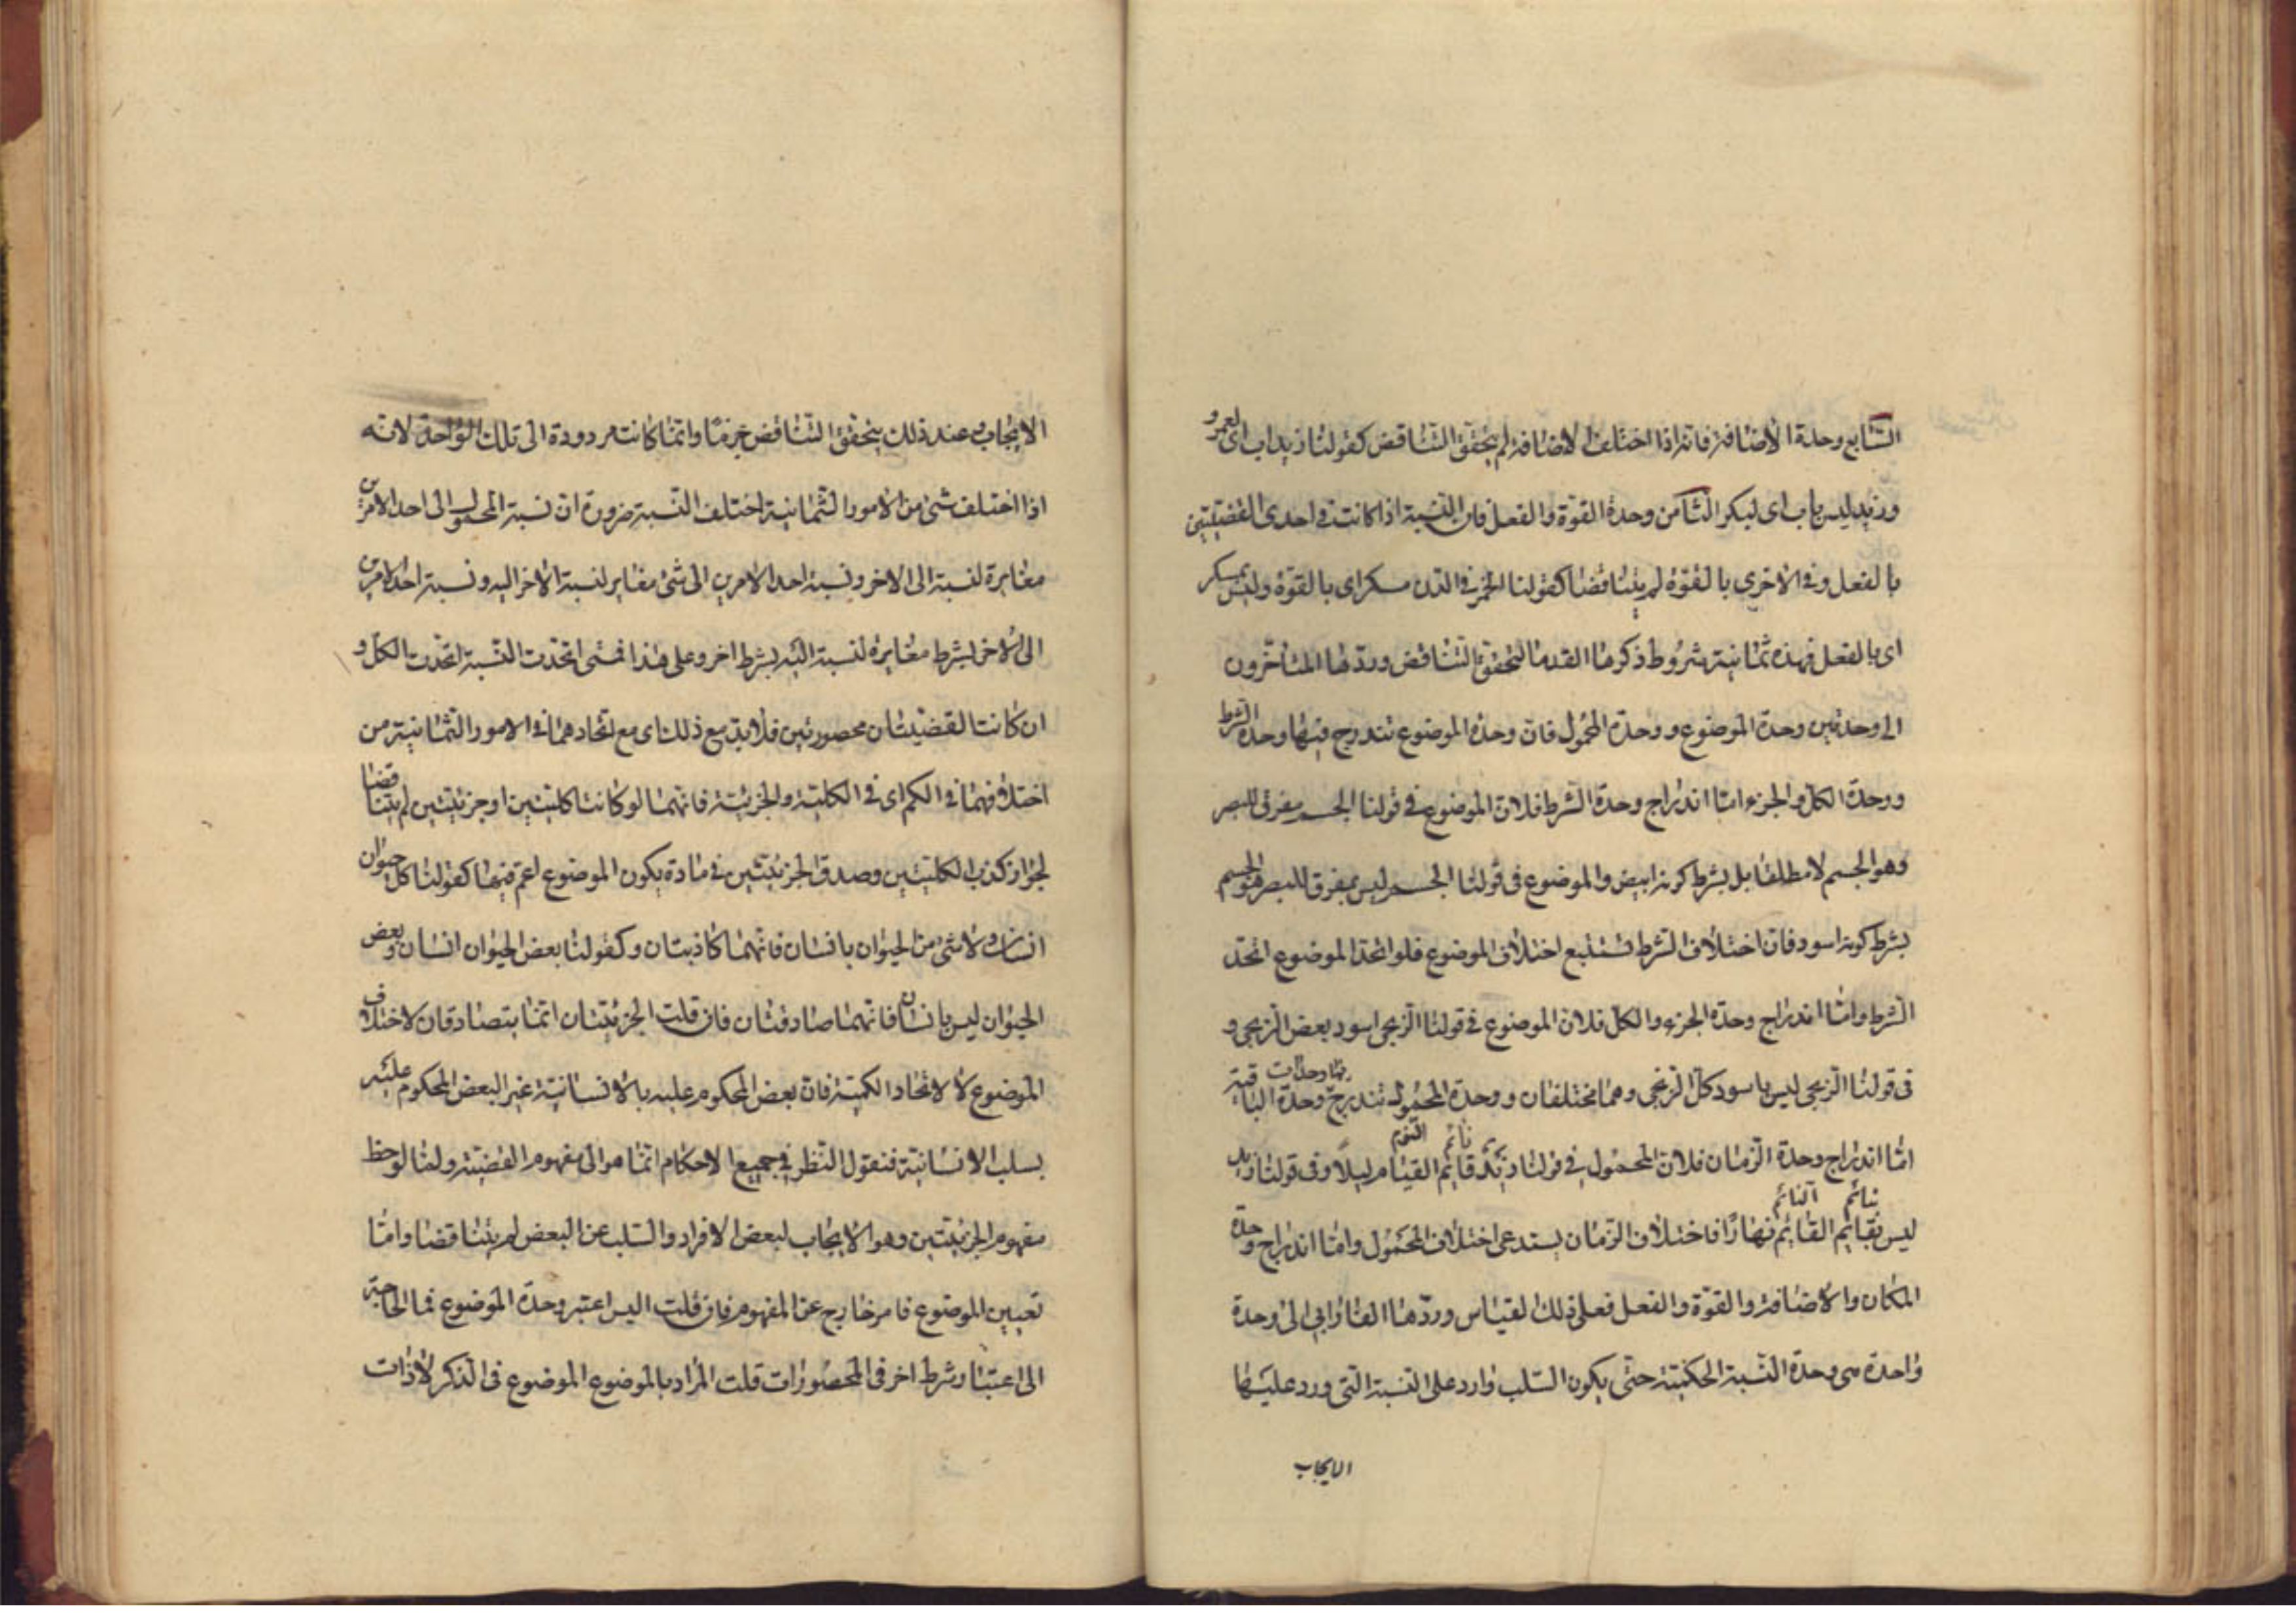 السابع وحدة الاضافة فانه اذا اختلف الاضافة لم يتحقق التناقض كقولنا زيد اب اى لعمرو
وزيد ليس باب اى لبكر الثامن وحدة القوة والفعل فان النسبة اذا كانت فى احدى القضيتين
بالفعل وفى الاخرى بالقوة لم يتناقضا كقولنا الخمر فى الدن مسكر اى بالقوة وليس بمسكر
اى بالفعل فهذه ثمانية شروط ذكرها القدما لتحقق التناقض وردّها المتأخرون
الى وحدتين وحدة الموضوع ووحدة المحمول فان وحدة الموضوع تندرج فيها وحدة الشرط
ووحدة الكل والجزء امّا اندراج وحدة الشرط فلان الموضوع فى قولنا الجسم مفرق للبصر
وهو الجسم لا مطلقا بل بشرط كونه ابيض والموضوع فى قولنا الجسم ليس بمفرق للبصر هو الجسم
بشرط كونه اسود فان اختلاف الشرط تستتبع اختلاف الموضوع فلو اتحد الموضوع اتحد
الشرط وامّا اندراج وحدة الجزء والكل فلان الموضوع فى قولنا الزنجى اسود بعض الزنجى و
فى قولنا الزنجى ليس باسود كل الزنجى وهما مختلفان ووحدة المحمول تندرج فيها وحدة الوحدات الباقية
امّا اندراج وحدة الزمان فلان المحمول فى قولنا زيد قائم نائم القيام النوم ليلا وفى قولنا زيد
ليس بقائم بنائم القائم النائم نهارًا فاختلاف الزمان يستدعى اختلاف المحمول وامّا اندراج وحدة
المكان والاضافة والقوة والفعل فعلى ذلك القياس وردّها الفارابى الى وحدة
واحدة هى وحدة النسبة الحكمية حتى يكون السلب وارد على النسبة التى ورد عليها
الايجاب
الايجاب وعند ذلك يتحقق التناقض جزمًا وانما كانت مردودة الى تلك الواحدة لانه
اذا اختلف شئ من الامور الثمانية اختلف النسبة ضرورة ان نسبة المحمول الى احد الامرين
مغايرة لنسبة الى الاخر ونسبة احد الامرين الى شئ مغاير لنسبة الاخر اليه ونسبة احد الامرين
الى الاخر بشرط مغايرة لنسبة اليه بشرط اخر وعلى هذا فمتى اتحدت النسبة اتحدت الكل و
ان كانت القضيتان محصورتين فلا بد مع ذلك اى مع اتحادهما فى الامور الثمانية من
اختلافهما فى الكم اى فى الكلية والجزئية فانهما لو كانتا كليتين او جزئيتين لم يتناقضا
لجواز كذب الكليتين وصدق الجزئيتين فى مادة يكون الموضوع اعم فيها كقولنا كل حيوان
انسان ولا شئ من الحيوان بانسان فانهما كاذبتان وكقولنا بعض الحيوان انسان وبعض
الحيوان ليس بانسان فانهما صادقتان فان قلت الجزئيتان انما يتصادقان لاختلاف
الموضوع لا لاتحاد الكمية فان بعض المحكوم عليه بالانسانية غير البعض المحكوم عليه
بسلب الانسانية فنقول النظر فى جميع الاحكام انما هو الى مفهوم القضية ولما لوحظ
مفهوم الجزئيتين وهو الايجاب لبعض الافراد والسلب عن البعض لم يتناقضا وامّا
تعيين الموضوع فامر خارج عن المفهوم فان قلت اليس اعتبر وحدة الموضوع فما الحاجة
الى اعتبار شرط اخر فى المحصورات قلت المراد بالموضوع الموضوع فى الذكر لا ذات